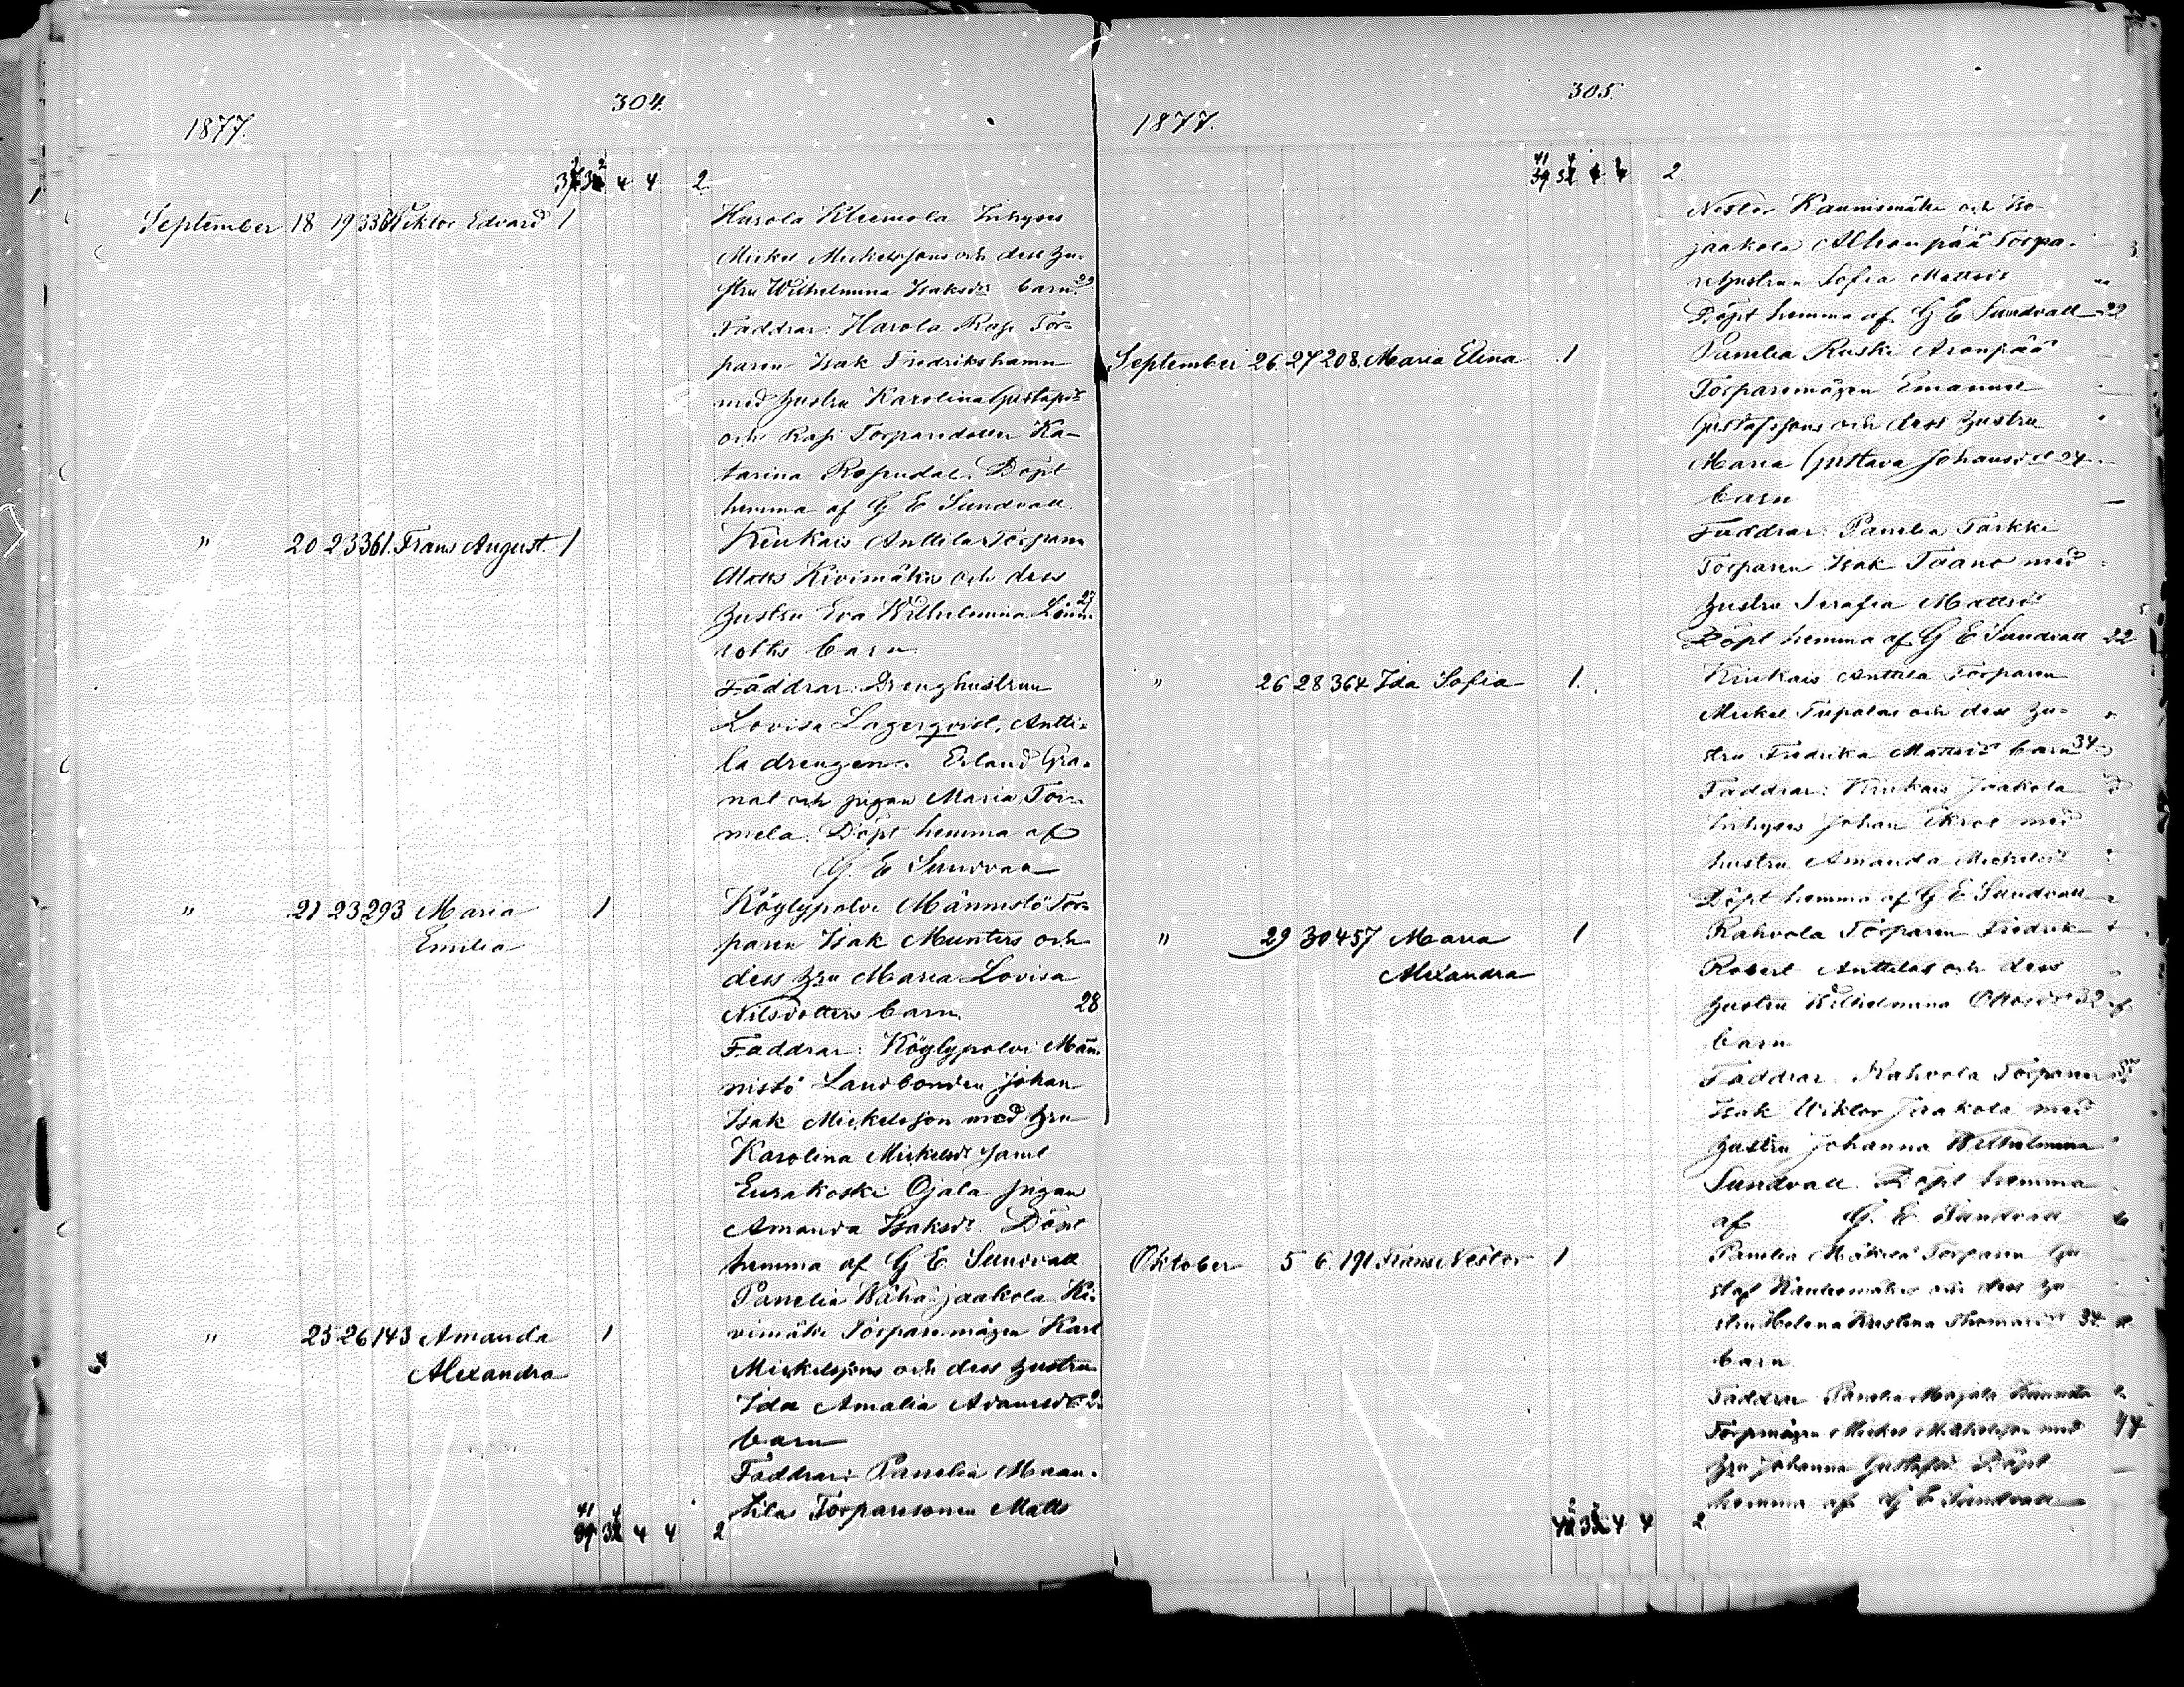 304.
1877.
37 32 4 4 2
September 18 19 336 Viktor Edvard 1
Harola Kleemola Inhyses
Mickel Mickelssons och dess hu-
stru Wilhelmina Isaksdr barn 29
Faddrar: Harola Rasi Tor-
paren Isak Fredrikshamn
med hustru Karolina Gustafsdr
och Rasi Torparedottern Ka-
tarina Rosendal. Döpt
hemma af G E Sundvall
" 20 23 361. Frans August. 1
Kiukais Anttila Torparen
Matts Kivimäkis och dess
hustru Eva Wilhelmina Lönn- 27
roths barn
Faddrar: Drenghustrun
Lovisa Lagerqvist, Antti-
la drengen Erland Gra-
nat och pigan Maria Tor-
mela. Döpt hemma af
G. E Sundvall
" 21 23 293 Maria 1
Emilia
Köylypolvi Männistö Tor-
paren Isak Munters och
dess hru Maria Lovisa
Nilsdotters barn. 28
Faddrar: Köylypolvi Män-
nistö Landbonden Johan
Isak Mickelsson med hru
Karolina Mickelsdr samt
Eurakoski Ojala pigan
Amanda Isaksdr. Döpt
hemma af G E Sundvall
" 25 26 143 Amanda 1
Alexandra
Panelia Wähä-jaakola Ki-
vimäki Torparemågen Karl
Mickelssons och dess hustru
Ida Amalia Adamsdr
barn
Faddrar: Panelia Maan-
tila Torparesonen Matts
41 4
39 32 4 4 2
305.
1877.
41 4
39 32 4 4 2
Nestor Kaunismäki och Iso-
jaakola Alhonpää Torpa-
rehustrun Sofia Mattsdr
Döpt hemma af G E Sundvall 22
September 26 27 208. Maria Elina 1
Panelia Ruski Aronpää
Torparemågen Emanuel
Gustafssons och dess hustru
Maria Gustava Johansdr 24
barn
Faddrar: Panelia Tarkki
Torparen Isak Taano med
hustru Serafia Mattsdr
Döpt hemma af G E Sundvall 22
" 26 28 364 Ida Sofia 1.
Kiukais Anttila Torparen
Mickel Tupalas och dess hu-
stru Fredrika Mattsdr barn 34
Faddrar: Kiukais Jaakola
Inhyses Johan med
hustru Amanda Mickelsdr
Döpt hemma af G E Sundvall
" 29 30 457 Maria 1
Alexandra
Rahvola Torparen Fredrik
Robert Anttilas och dess
hustru Wilhelmina Ottosdr 32
barn
Faddrar: Rahvola Torparen
Isak Wiktor Jaakola med
hustru Johanna Wilhelmina
Sundvall. Döpt hemma
af G. E. Sundvall
Oktober 5 6. 191 Frans Nestor 1
Panelia Mäkilä Torparen Gu-
staf och dess hu-
stru Helena Kristina Thomasdr 34
barn
Faddrar: Panelia Majala
Torpmågen Mickel Mickelsson med 44
hru Johanna Gustafsdr Döpt
hemma af G E Sundvall
4 4 2